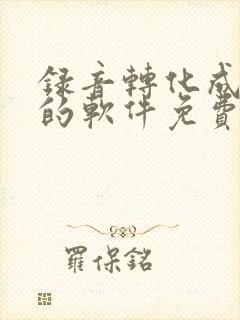 錄音轉化成
的軟件免費
羅保銘